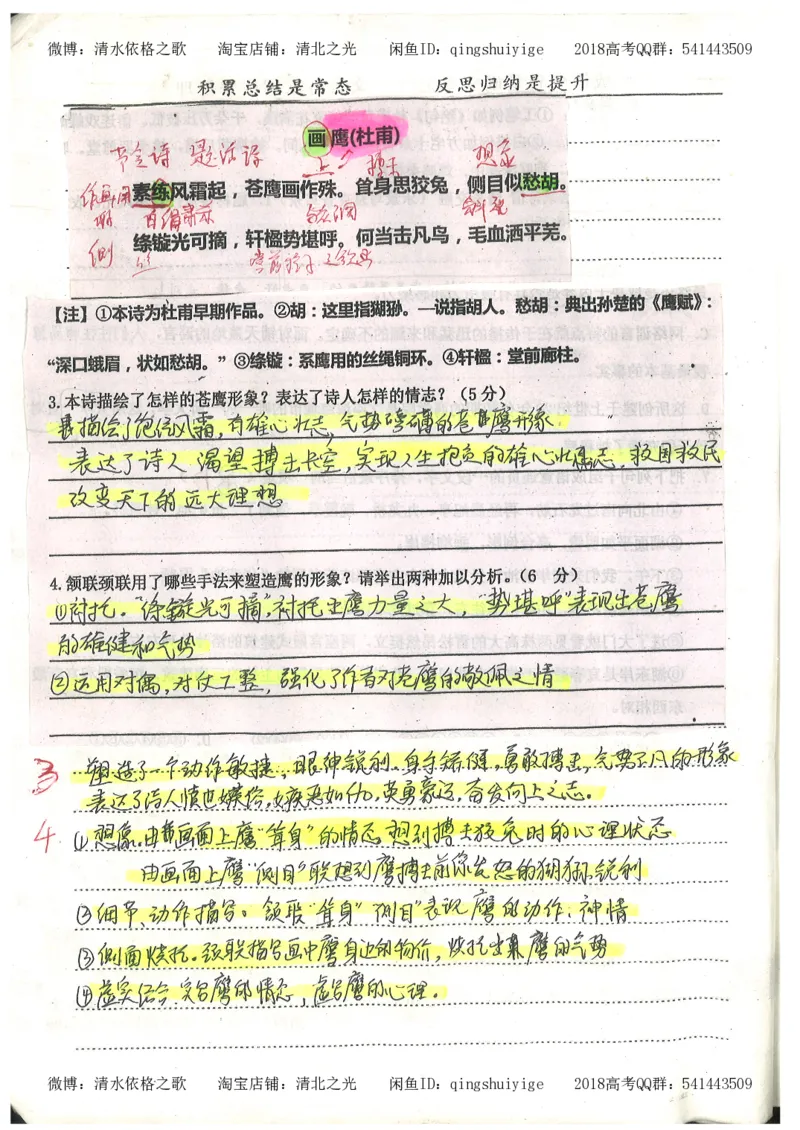 微博：清水依格之歌 淘宝店铺：清北之光 闲鱼ID：qingshuiyige 2018高考QQ群：541443509
积累总结是常态 反思归纳是提升
画鹰(杜甫)
题画诗 想象
素练风霜起，苍鹰画作殊。㧐身思狡兔，侧目似愁胡。
绦镟光可摘，轩楹势堪呼。何当击凡鸟，毛血洒平芜。
侧 丝
【注】①本诗为杜甫早期作品。②胡：这里指猢狲。一说指胡人。愁胡：典出孙楚的《鹰赋》：
“深口蛾眉，状如愁胡。”③绦镟：系鹰用的丝绳铜环。④轩楹：堂前廊柱。
3.本诗描绘了怎样的苍鹰形象？表达了诗人怎样的情志？（5分）
描绘了饱经风霜，有雄心壮志，气势磅礴的苍鹰形象.
表达了诗人渴望搏击长空，实现人生抱负的雄心壮志，救国救民
改变天下的远大理想
4.颔联颈联用了哪些手法来塑造鹰的形象？请举出两种加以分析。（6 分）
①衬托。“绦镟光可摘”衬托出鹰力量之大，“势堪呼”表现出苍鹰
的雄健和气势
②运用对偶，对仗工整，强化了作者对苍鹰的敬佩之情
3 塑造了一个动作敏捷，眼神锐利，身手矫健，勇敢搏击，气势不凡的形象
表达了诗人愤世嫉俗，嫉恶如仇，英勇豪迈，奋发向上之志。
4 ①想象。由画面上鹰“耸身”的情态想到搏击狡兔时的心理状态
由画面上鹰“侧目”联想到鹰搏击前像发怒的猢狲，锐利
②细节、动作描写。颔联“耸身”“侧目”表现鹰的动作、神情
③侧面烘托。颈联描写画中鹰身边的物价，烘托出鹰的气势
④虚实结合。实写鹰的情态，虚写鹰的心理。
微博：清水依格之歌 淘宝店铺：清北之光 闲鱼ID：qingshuiyige 2018高考QQ群：541443509